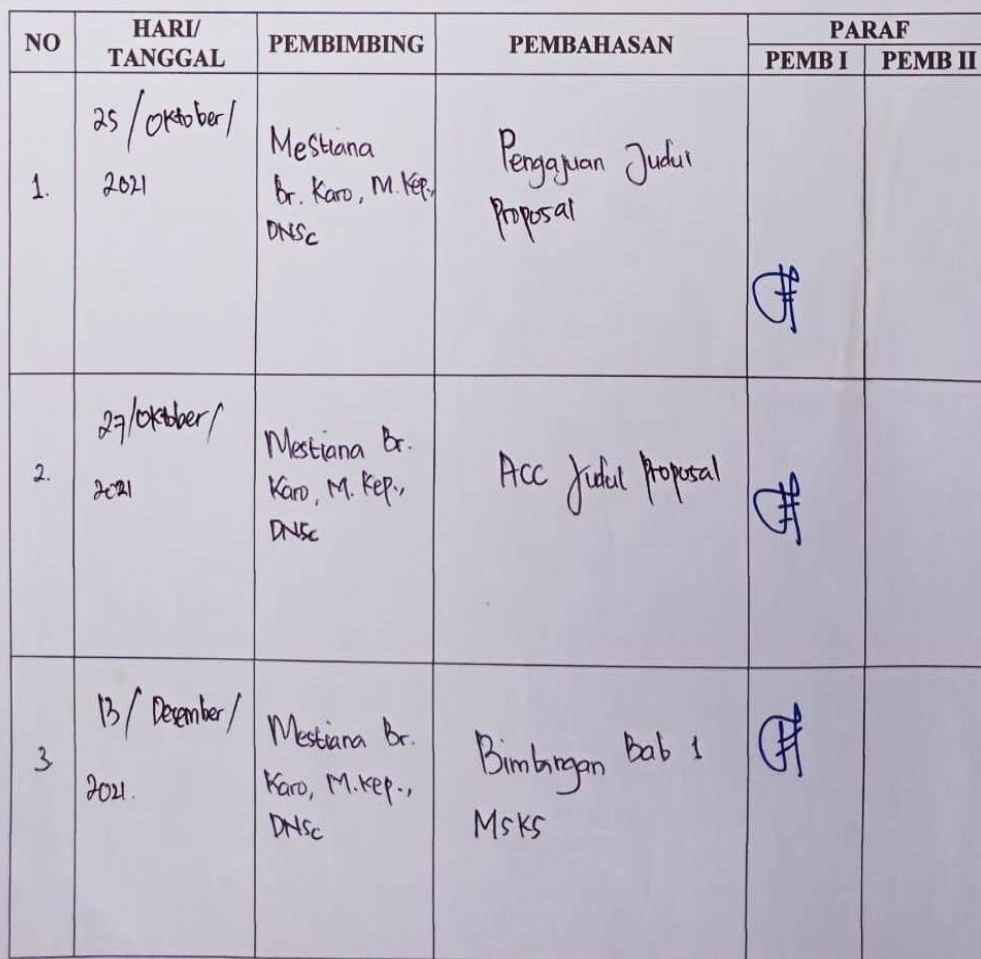 NO HARI/ TANGGAL PEMBIMBING PEMBAHASAN PARAF
PEMB I PEMB II
1.
25 / Oktober /
2021
Mestiana
Br. Karo, M. Kep.,
DNSc
Pengajuan Judul
Proposal
2.
27/Oktober/
2021
Mestiana Br.
Karo, M. Kep.,
DNSc
Acc Judul Proposal
3
13/ Desember/
2021.
Mestiana Br.
Karo, M.Kep.,
DNSc
Bimbingan Bab 1
MSKS